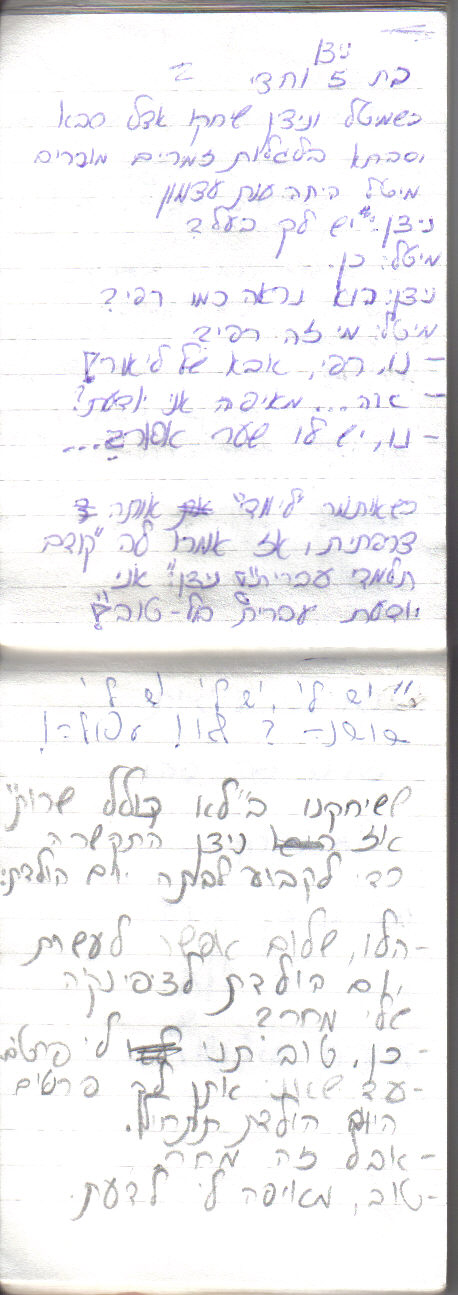 ניצן
בת 5 וחצי
כשמיטל וניצן שחקו אצל סבא
וסבתא בלגלות זמרים מוכרים
מיטל היתה ענת עצמון
ניצן: "יש לך בעל?
מיטל: כן.
ניצן: הוא נראה כמו רפי?
מיטל: מי זה רפי?
- נו, רפי, אבא של ליאור!
- אוה... מאיפה אני יודעת?
- נו, יש לו שער אפור?...
כשאיתמר "לימד" אותה
צרפתית, אז אמרו לה "קודם
תלמדי עברית" ניצן: "אני
יודעת עברית הכל-טוב"!
"יש לי, יש לי, יש לי
שושנה? לא! עפולה!
ששיחקנו ב"לא כולל שרות"
אז ניצן התקשרה
כדי לקבוע לבתה יום הולדת:
- הלו, שלום אפשר לעשות
יום הולדת לציפינקה
שלי מחר?
- כן, טוב תני לי פרטים
- עד שאני אתן לך פרטים
היום הולדת תתחיל.
- אבל זה מחר
- טוב, מאיפה לי לדעת.